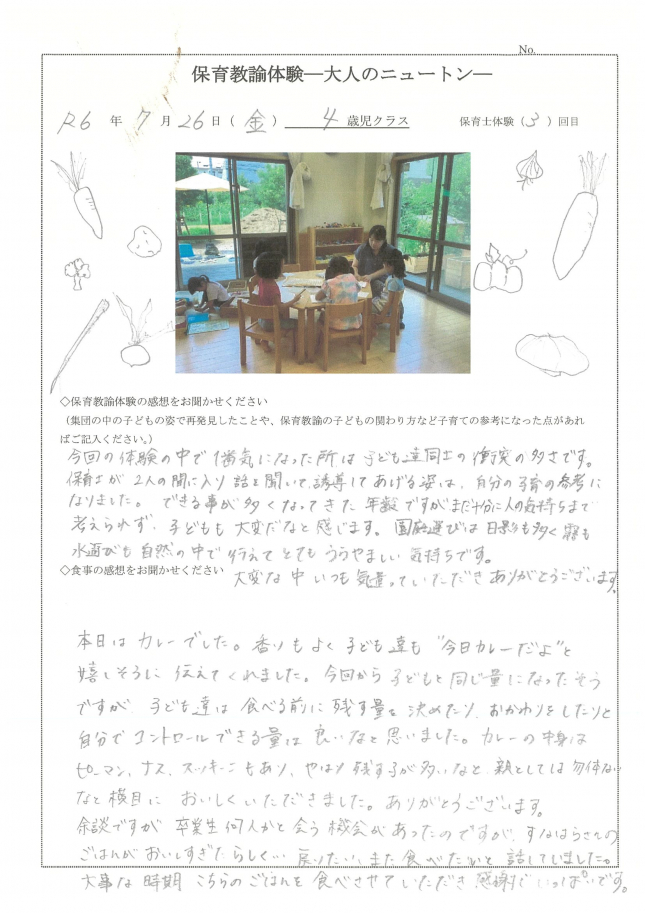 No.
保育教諭体験―大人のニュートン―
R6 年 7 月 26 日(金) 4 歳児クラス 保育士体験(3)回目
◇保育教諭体験の感想をお聞かせください
(集団の中の子どもの姿で再発見したことや、保育教諭の子どもの関わり方など子育ての参考になった点があれ
ばご記入ください。)
今回の体験の中で1番気になった所は子ども達同士の衝突の多さです。
保育士が2人の間に入り話を聞いて、誘導してあげる姿は、自分の子育の参考に
なりました。できる事が多くなってきた年齢ですがまだ十分に人の気持ちまで
考えられず、子どもも大変だなと感じます。園庭遊びは日影も多く霧も
水遊びも自然の中で行えてとてもうらやましい気持ちです。
◇食事の感想をお聞かせください
大変な中いつも気遣っていただきありがとうございます。
本日はカレーでした。香りもよく子ども達も"今日カレーだよ"と
嬉しそうに伝えてくれました。今回から子どもと同じ量になったそう
ですが、子ども達は食べる前に残す量を決めたり、おかわりをしたりと
自分でコントロールできる量は良いなと思いました。カレーの中身は
ピーマン、ナス、ズッキーニもあり、やはり残す子が多いなと、親としては勿体ない
なと横目においしくいただきました。ありがとうございます。
余談ですが卒業生何人かと会う機会があったのですが、すなはらさんの
ごはんがおいしすぎたらしく… 戻りたい、また食べたいと話していました。
大事な時期こちらのごはんを食べさせていただき感謝でいっぱいです。